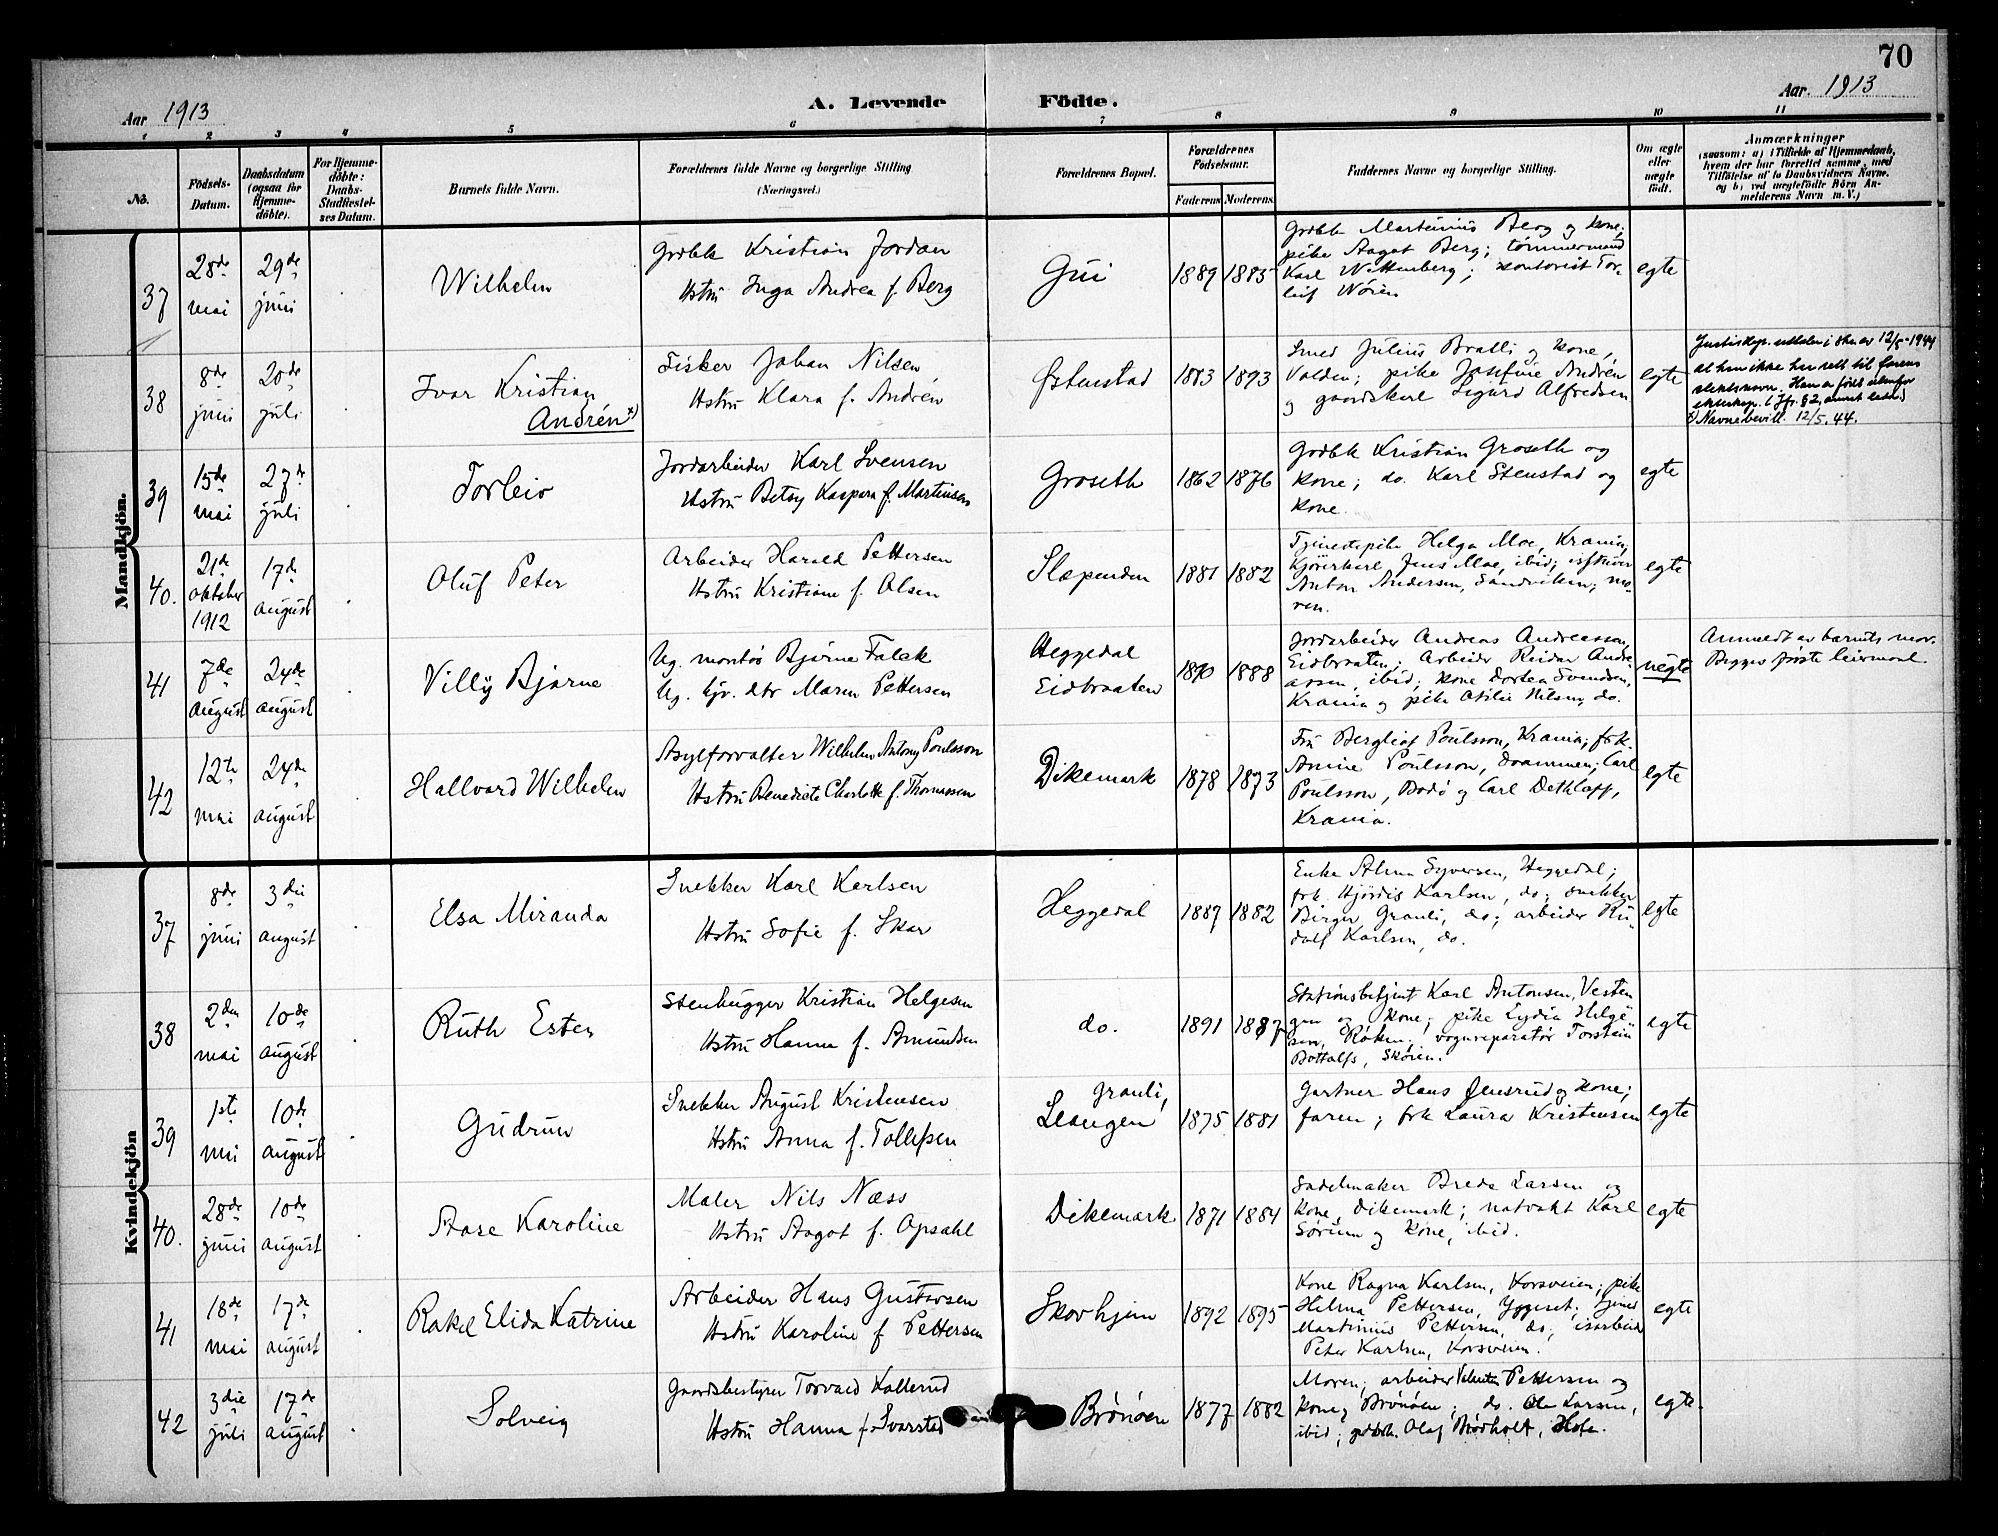 70
Aar 1913
A. Levende Födte.
Aar. 1913
1 2 3 4 5 6 7 8 9 10 11
No.
Födsels-Datum.
Daabsdatum (ogsaa for Hjemme-döbte).
For Hjemme-döbte: Daabs-Stadfæstel-ses Datum.
Barnets fulde Navn.
Forældrenes fulde Navne og borgerlige Stilling (Næringsvei.)
Forældrenes Bopæl.
Forældrenes Födselsaar.
Faderens Moderens
Faddernes Navne og borgerlige Stilling.
Om ægte eller uægte födt.
Anmærkninger
(saasom: a) i Tilfælde af Hjemmedaab,
hvem der har forrettet samme, med
Tilföielse af to Daabsvidners Navne.
og b) ved uægtefödte Börn An-
melderens Navn m.V.)
Mandkjön.
37
28de mai
29de juni
Wilhelm
Grdbk Kristian Jordan
Hstru Inga Andrea f. Berg
Gui
1889 1885
Grdbk Martinius Berg og kone;
pike Aagot Berg; tømmermand
Karl Wittenberg; kontorist Tor-
leif Nören
egte
38
8de juni
20de juli
Ivar Kristian
Andrén +)
Fisker Johan Nilsen
Hstru Klara f. Andrén
Østenstad
1883 1893
Smed Julius Bratli og kone,
Valden; pike Josefine Andrén
og gaardskarl Sigurd Alfredsen
egte
12/5-1944
at han ikke har rett til farens
slektsnavn. Han er født utenfor
ekteskap.
+) Navnebevill. 12/5.44.
39
15de mai
27de juli
Torleiv
Jordarbeider Karl Svensen
Hstru Betsy Kaspara f. Martinsen
Groseth
1862 1876
Grdbk Kristian Groseth og
kone; do. Karl Stenstad og
kone.
egte
40.
21de oktober 1912
17de august
Oluf Peter
Arbeider Harald Pettersen
Hstru Kristiane f. Olsen
Slæpenden
1881 1882
Tjenestepike Helga Moe, Krania;
kjørerkarl Jens Moe, ibid;
Anton Andersen, Sandviken; mo-
ren.
egte
41
7de august
24de august
Villy Bjarne
Ug. montør Bjarne Falck
Ug. gjv. dtr Maren Pettersen
Heggedal
Eidbraaten
1890 1888
Jordarbeider Andreas Andreassen,
Eidbraaten; arbeider Reidar Andre-
assen, ibid; kone Dortea Svendsen,
Krania og pike Otilie Nilsen, do.
uegte
Anmeldt av barnets mor.
Begges første leiermaal.
42
12te mai
24de august
Hallvard Wilhelm
Asylforvalter Wilhelm Antony Poulsson
Hstru Benedicte Charlotte f. Thomassen
Dikemark
1878 1873
Fru Bergliot Poulsson, Krania; frk.
Annine Poulsson, Drammen; Carl
Poulsson, Bodø og Carl Dethloff,
Krania.
egte
Kvindekjön
37
8de juni
3die august
Elsa Miranda
Snekker Karl Karlsen
Hstru Sofie f. Skar
Heggedal
1887 1882
Enke Alma Syversen, Heggedal;
frk. Hjördis Karlsen, do; snekker
Birger Granli, do; arbeider Ru-
dolf Karlsen, do.
egte
38
2den mai
10de august
Ruth Ester
Stenhugger Kristian Helgesen
Hstru Hanna f. Amundsen
do.
1891 1887
Stationsbetjent Karl Antonsen, Vesten-
gen og kone; pike Lydia Helge-
sen, Røken; vognreparatør Torstein
Bottolfs, Skøien.
egte
39
1ste mai
10de august
Gudrun
Snekker August Kristensen
Hstru Anna f. Tollefsen
Granli,
Leangen
1875 1881
Gartner Hans Jensrud og kone;
faren; frk Laura Kristensen
egte
40.
28de juni
10de august
Aase Karoline
Maler Nils Næss
Hstru Aagot f. Opsahl
Dikemark
1871 1884
Sadelmaker Brede Larsen og
kone, Dikemark; natvakt Karl
Sørum og kone, ibid.
egte
41
18de mai
17de august
Rakel Elida Katrine
Arbeider Hans Gustavsen
Hstru Karoline f Pettersen
Skovhjem
1892 1895
Kone Ragna Karlsen, Korsveien; pike
Helma Pettersen, Yggeset;
Martinius Pettersen, do; isarbeider
Peter Karlsen, Korsveien.
egte
42
3die juli
17de august
Solveig
Gaardsbestyrer Torvald Kallerud
Hstru Hanna f. Svarstad
Brønøen
1877 1882
Moren; arbeider Valentin Pettersen og
kone, Brønøen; do. Ole Larsen,
ibid; grdbk. Olaf Brødholt,
egte.